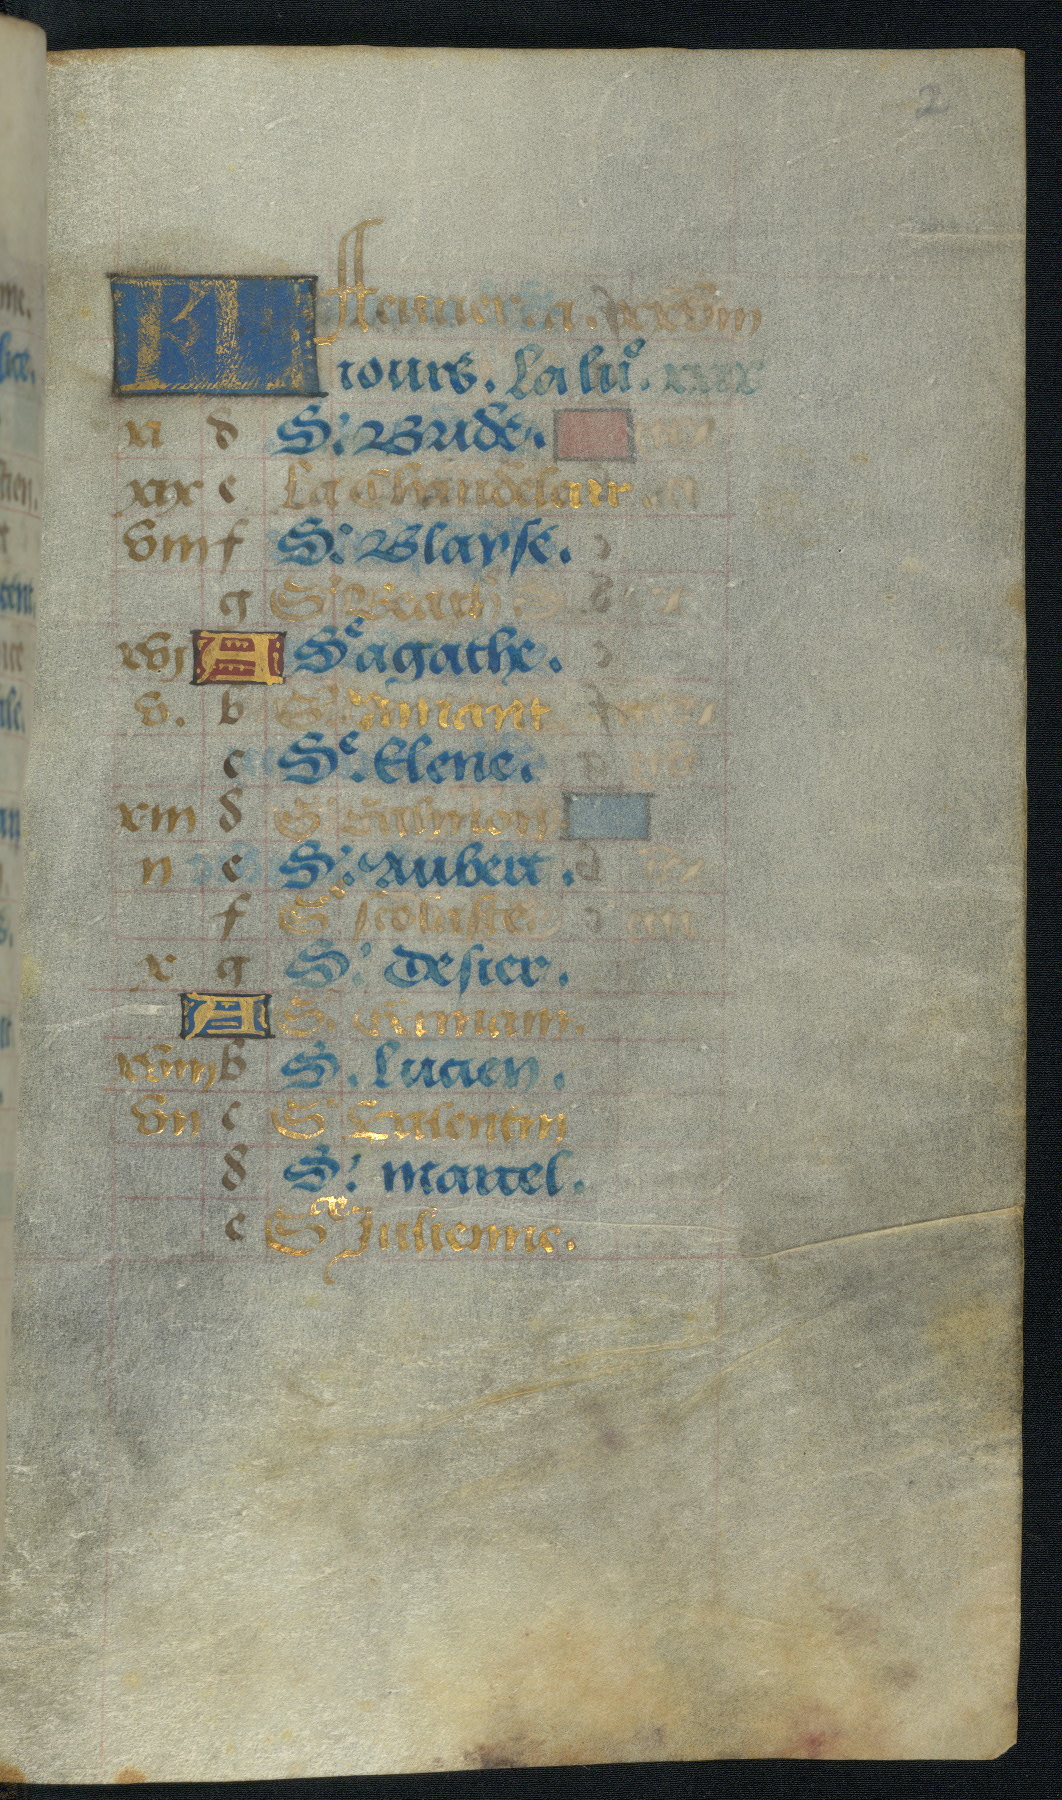 2
KL feurier a. xxviii
iours. La lu^e. xxix
xi d S^t Bride.
xix e La Chandeleur
viii f S^t Blayse.
g S^t
xvi A S^e agathe.
v. b S^t Amant
c S^e. Elene.
xiii d S^t
ii e S^t Aubert.
f S^e scolaste
x g S^t desier.
A S^t
xviii b S. Lucien.
vii c S^t Valentin
d S^t marcel.
e S^e Julienne.